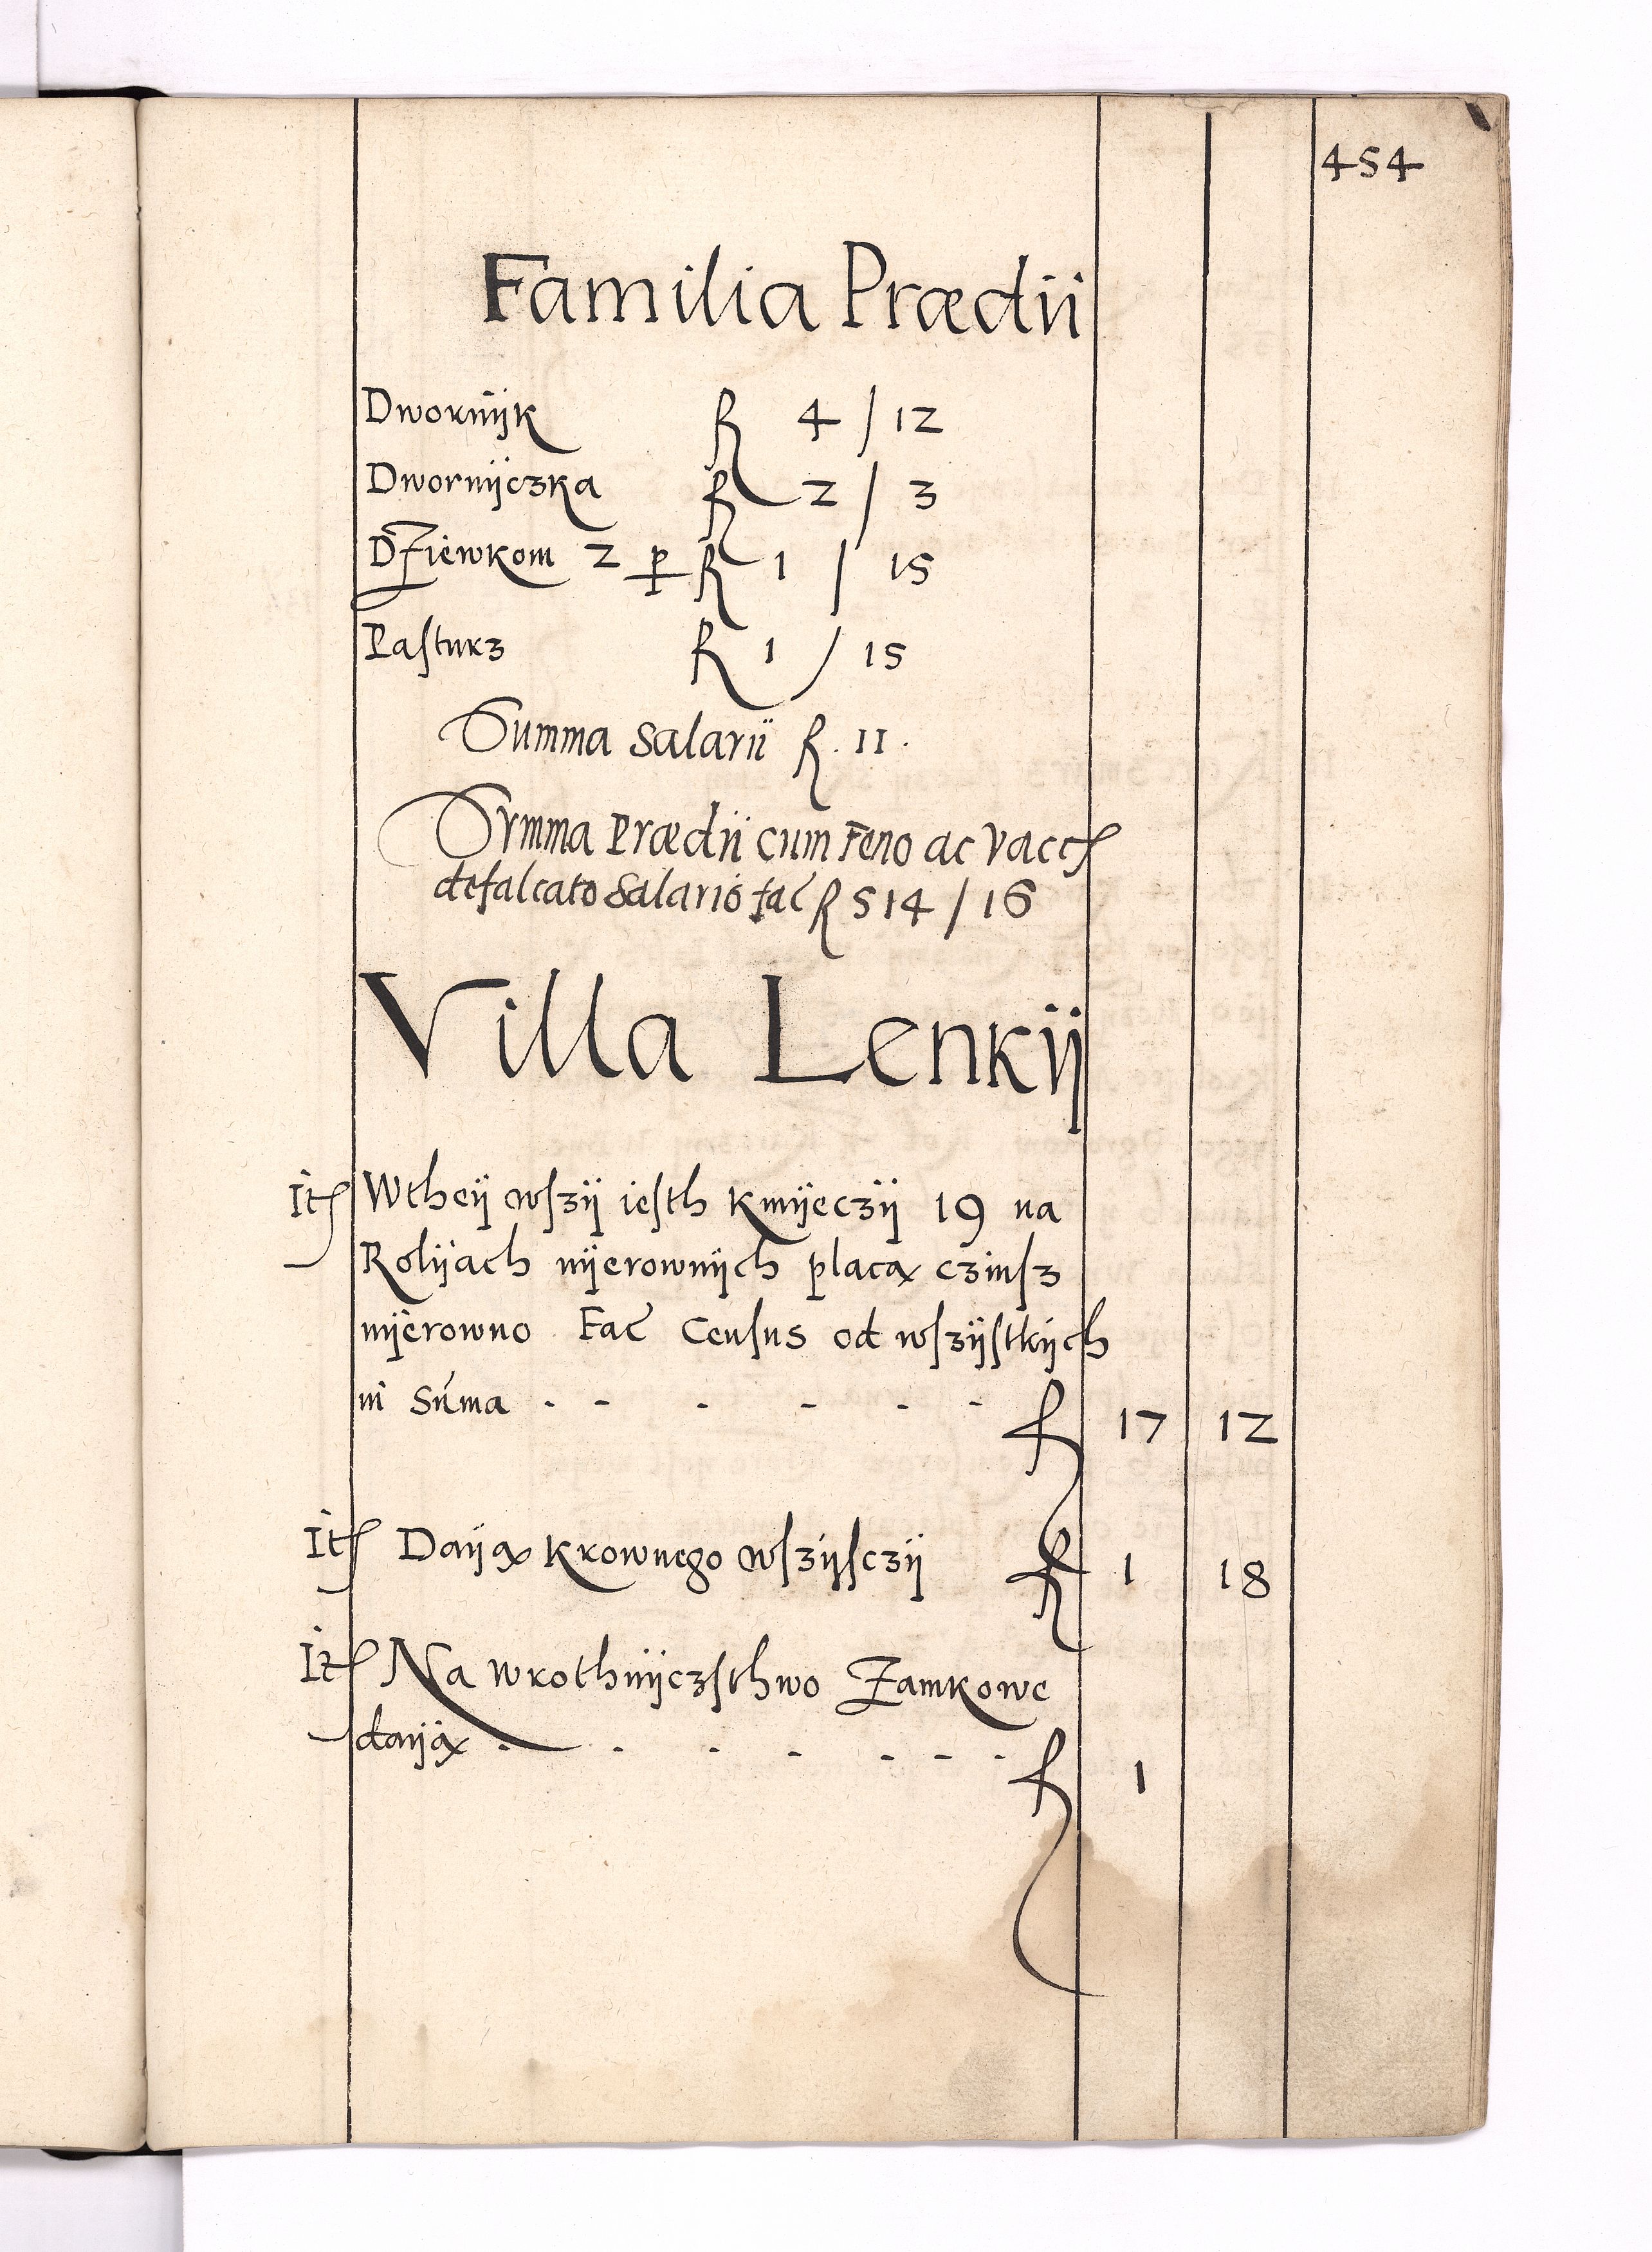 454
Familia Prædii
Dwornijk ƒ 4 / 12
Dwornijczka ƒ 2 / 3
Dziewkom 2 p ƒ 1 / 15
Pasturz ƒ 1 / 15
Summa Salarii ƒ. 11.
Svmma Prædii cum Feno ac Vacc
defalcato Salario fac ƒ 514 / 16
Villa Lenkij
Itꝭ Wtheij wſzij ieſth Kmijeczij 19 na
Rolijach nijerownijch placą czinſz
nijerowno Fac Cenſus od wſzijſtkijch
in Sum̄a . - - - - - ƒ 17 12
Itꝭ Daiją Krownego wſzijſczij ƒ 1 18
Itꝭ Na wrothnijczſthwo Zamkowe
daiją - - - - - - - ƒ 1